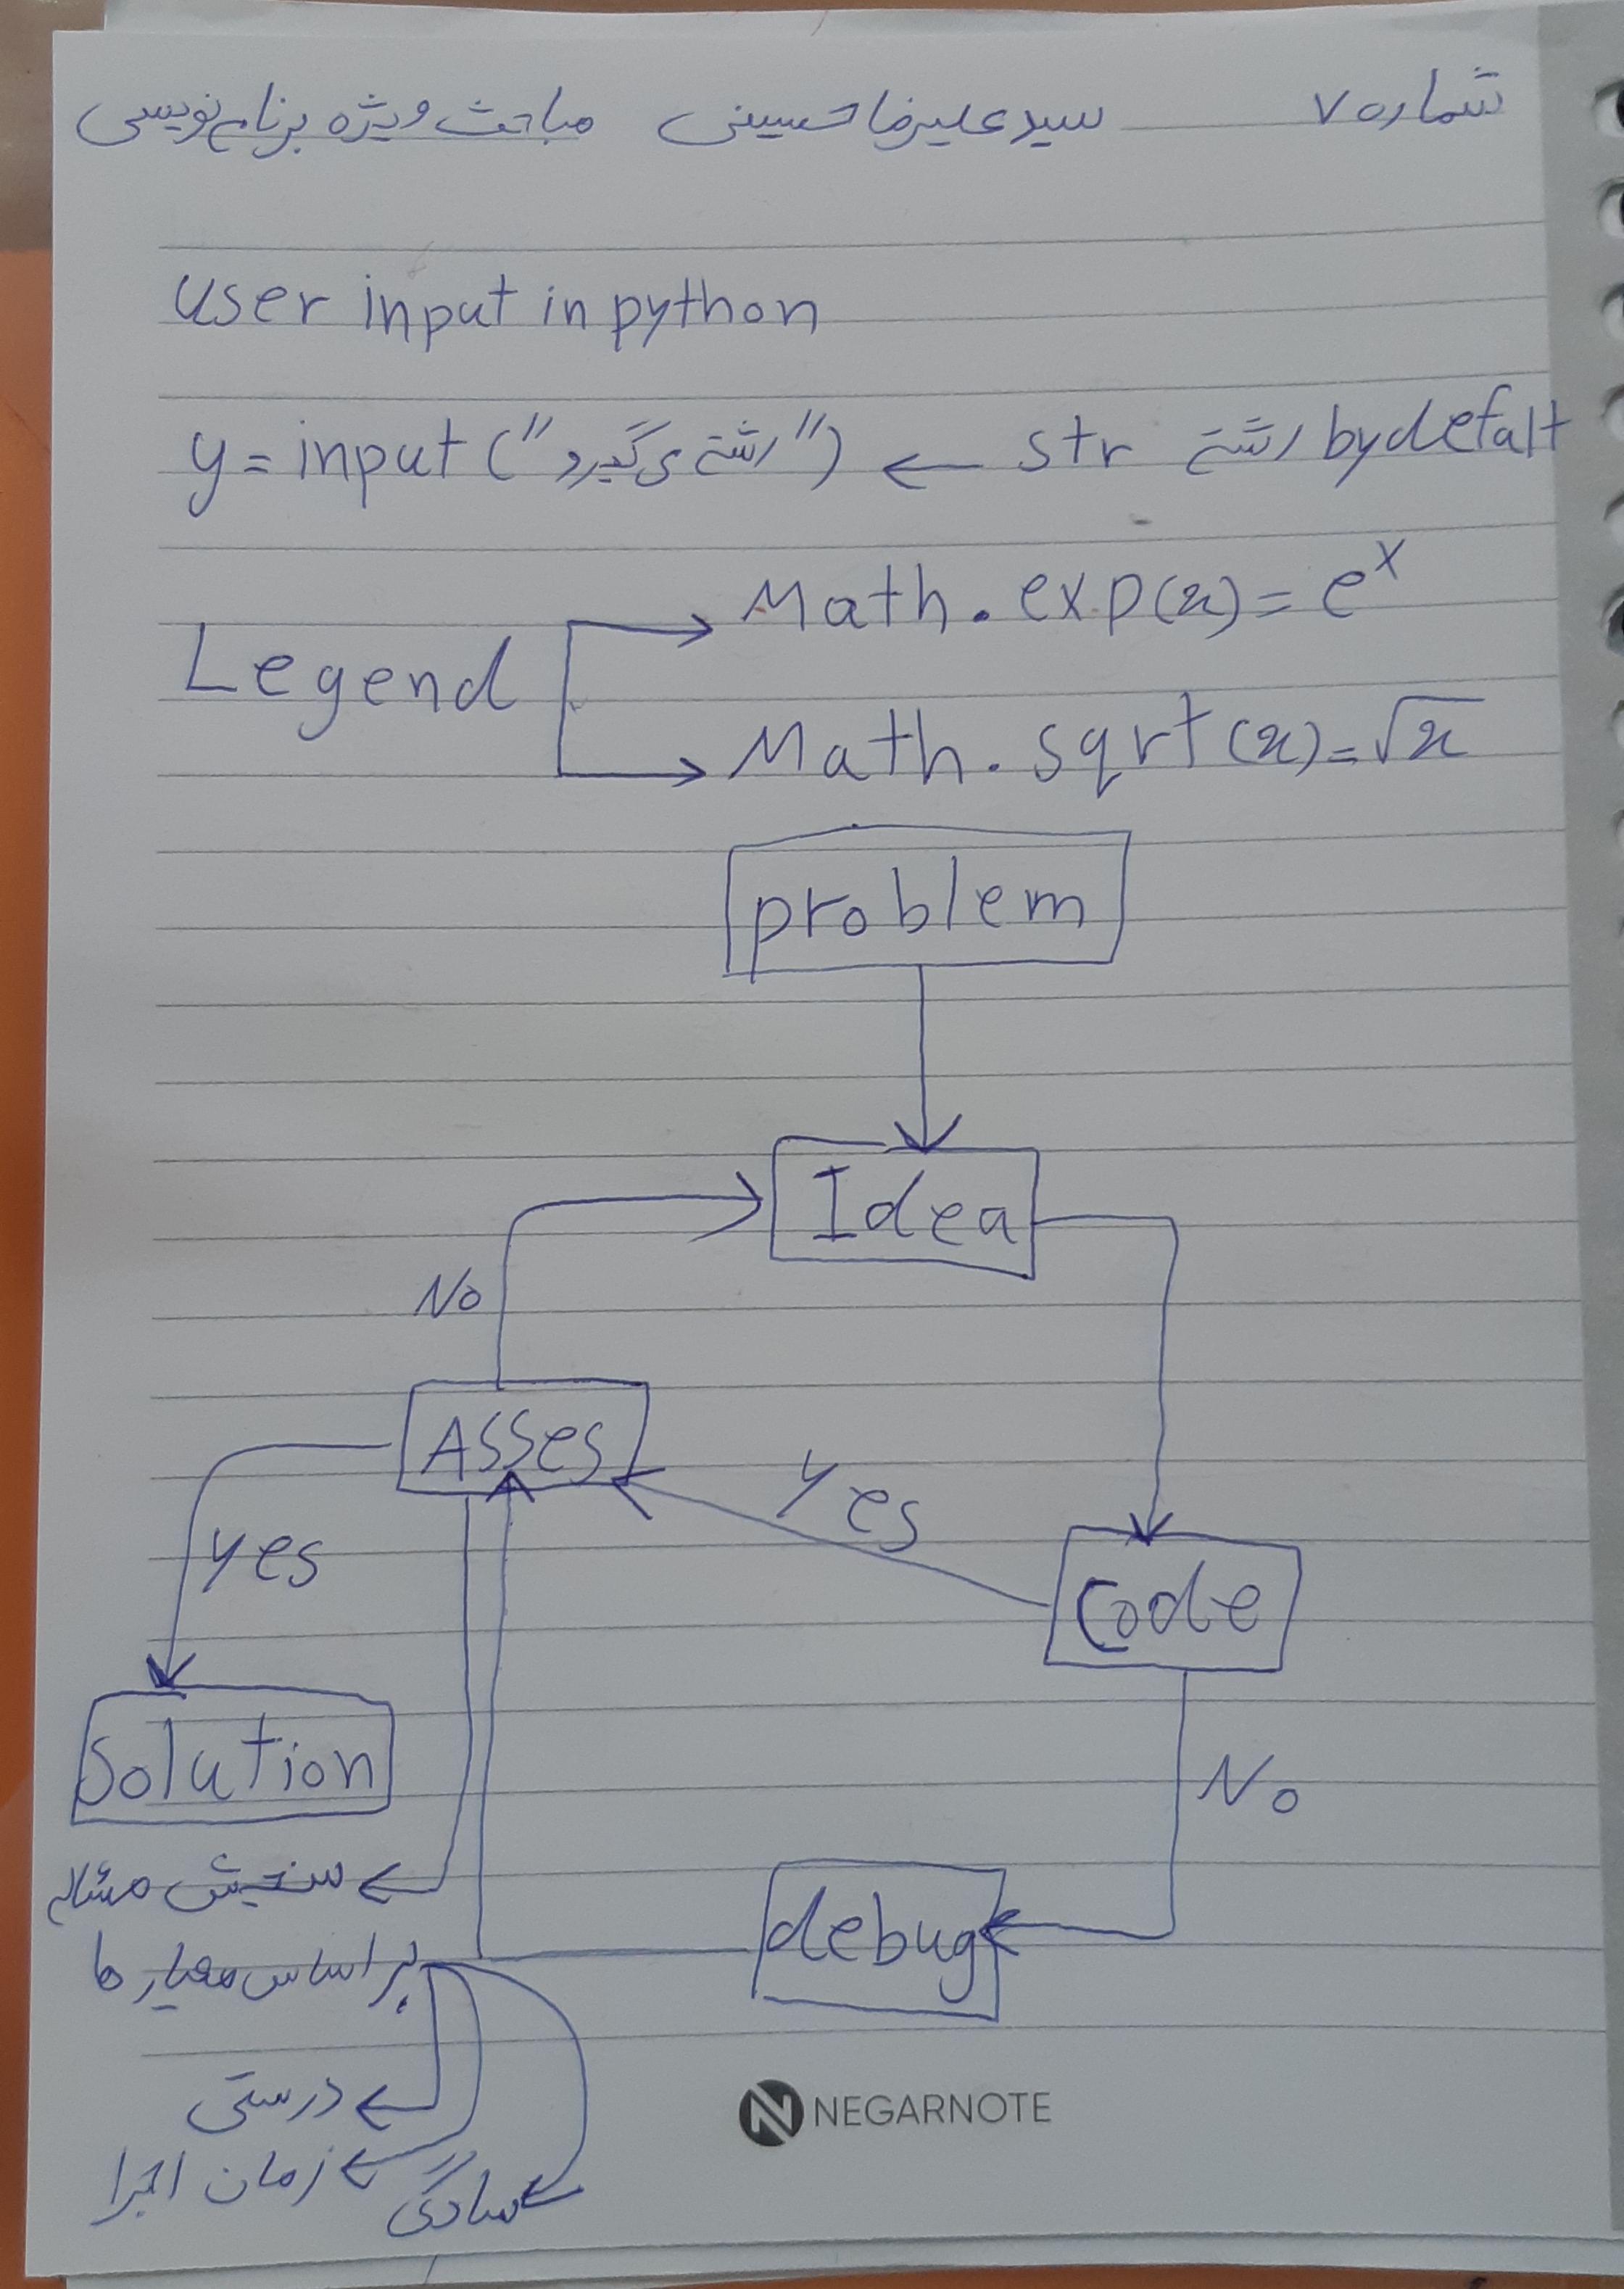 شماره ۷ سید علیرضا حسینی مباحث ویژه برنامه نویسی
user input in python
y = input ("رشته می گیرد") ← str رشته by defalt
Legend
Math.exp(x) = e^x
Math.sqrt(x) = √x
problem
Idea
No
Asses
Yes
yes
Code
Solution
No
سنجش مسئله
debug
بر اساس معیار ها
درستی
زمان اجرا
سادگی
NEGARNOTE